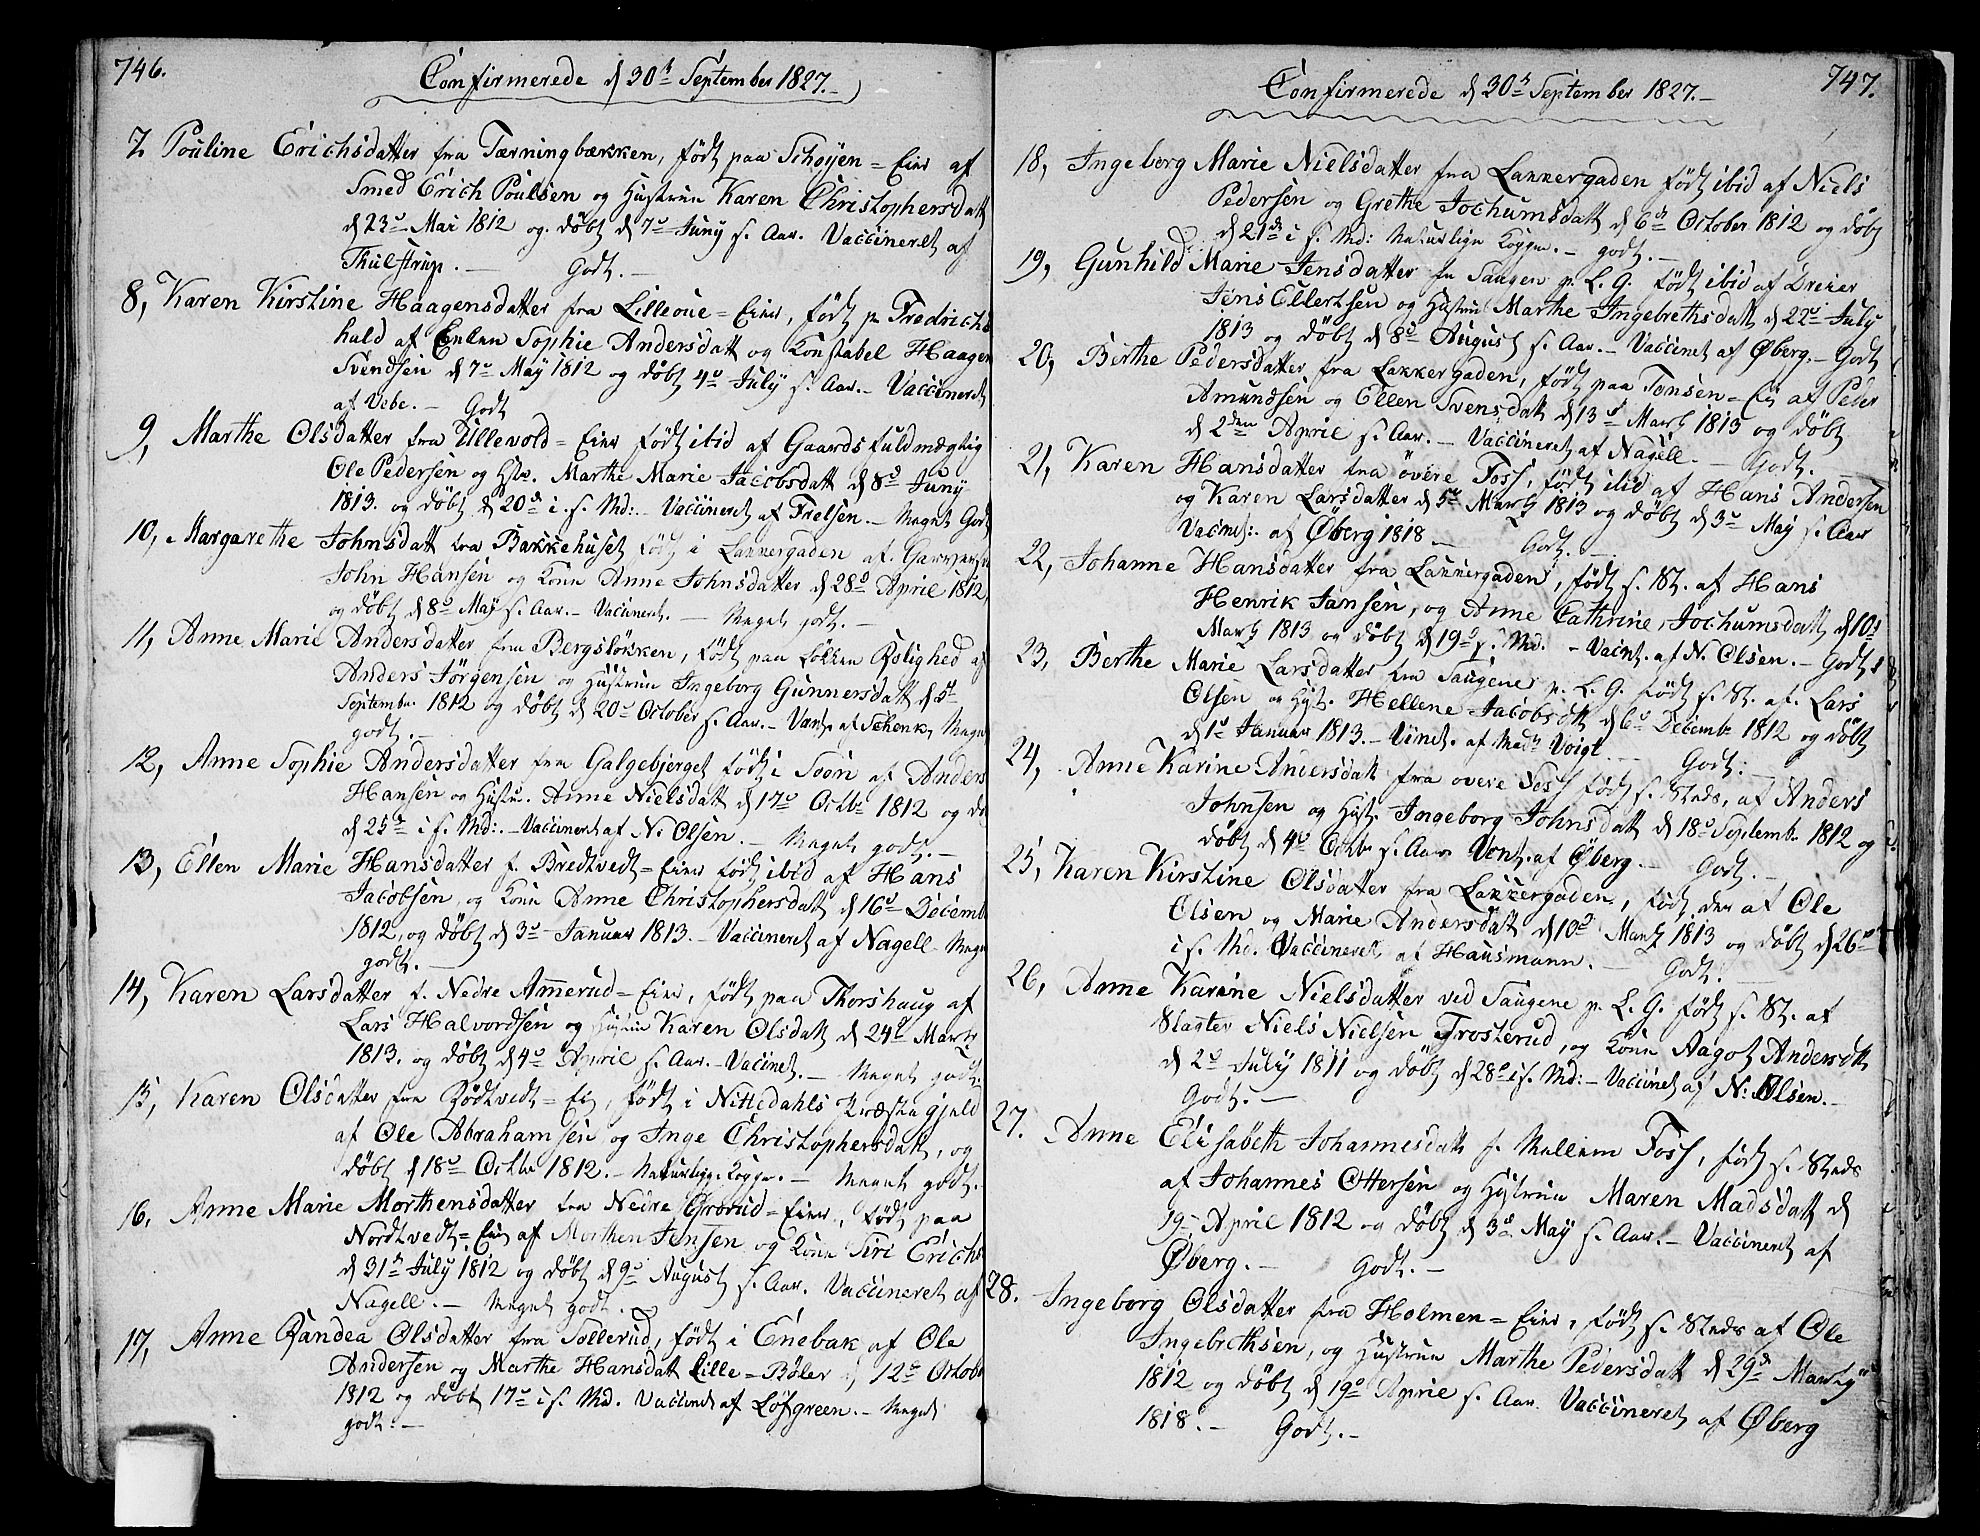 746.
Confirmerede d 30te September 1827.
7. Pouline Erichsdatter fra Tærningbækken, født paa Schøyen=Eier af
Smed Erich Poulsen og Hustrue Karen Christophersdatt
d 23de Mai 1812 og døbt d 7de Juny s. Aar. Vaccineret af
Thulstrup. — Godt. —
8, Karen Kirstine Haagensdatter fra Lilleoue=Eier, født p Fredrichs
hald af Enken Sophie Andersdatt og Constabel Haagen
Svendsen d 7de May 1812 og døbt 4de July s. Aar. — Vaccineret
af Vebe. — Godt
9, Marthe Olsdatter fra Ullevold=Eier født ibid af Gaardsfuldmægtig
Ole Pedersen og Hst. Marthe Marie Jacobsdatt d 8de Juny
1813. og døbt d 20de i s. Md: — Vaccineret af Frelsen. — Meget Godt
10, Margarethe Johnsdatt fra Bakkehuset født i Lakkergaden af
John Hansen og Kone Anne Johnsdatter d 28de April 1812,
og døbt d 8de May s. Aar. — Vaccineret. — Meget godt. —
11, Anne Marie Andersdatter fra Bergsløkken, født paa Løkken Rolighed af
Anders Jörgensen og Hustrue Ingeborg Gunnersdatt d 5te
Septembr. 1812 og døbt d 20de October s. Aar. — Vact. af Schenk, Meget
godt. —
12, Anne Sophie Andersdatter fra Galgebjerget født i Soon af Anders
Hansen og Hustru. Anne Nielsdatt d 17de Octbr 1812 og dø
d 25de i s. Md:. — Vaccineret af N. Olsen. — Meget godt. —
13, Ellen Marie Hansdatter f. Bredtvedt=Eier født ibid af Hans
Jacobsen, og Kone Anne Christophersdatt d 16de Decemb
1812, og døbt d 3de Januar 1813. — Vaccineret af Nagell Meget
godt. —
14, Karen Larsdatter f. Nedre Ammerud=Eier, født paa Thorshaug af
Lars Halvordsen og Hustrue Karen Olsdatt d 24de Marty
1813. og døbt d 4de April s. Aar. — Vaccinet. — Meget godt.
15, Karen Olsdatter fra Rödtvedt=Ei, født i Nittedahls Præstegjeld
af Ole Abrahamsen og Inge Christophersdatt, og
døbt d 18de Octbr 1812. — Naturlige Kopper. — Meget godt. —
16, Anne Marie Morthensdatter fra Nedre Grorud=Eier, født paa
Nordtvedt=Ei af Morthen Jensen og Kone Siri Erichs
d 31te July 1812 og døbt d 9de August s. Aar. Vaccineret af
Nagell. — Meget godt.
17, Anne Randea Olsdatter fra Tollerud, født i Enebak af Ole
Andersen og Marthe Hansdatt Lille=Bøler d 12te Octob
1812 og døbt 17de i s. Md. Vaccinet af Løfgreen. — Meget
godt. —
747.
Confirmerede d 30te September 1827. —
18, Ingeborg Marie Nielsdatter fra Lakkergaden født ibid af Niels
Pedersen og Grethe Jochumsdatt d 6te October 1812 og døbt
d 21de i s. Md: Naturlige Kopper. — godt. —
19, Gunhild Marie Jensdatter fra Saugen p. L. G. født ibid af Dreier
Jens Ellertsen og Hustrue Marthe Ingebrethsdatt d 22de July
1813 og døbt d 8de August s. Aar. — Vaccinet af Øberg. — Godt
20, Birthe Pedersdatter fra Lakkergaden, født paa Tonsen=Ei af Peder
Amundsen og Ellen Svensdatt d 13de Marty 1813 og døbt
d 2den April s. Aar. — Vaccineret af Nagell. — Godt.
21, Karen Hansdatter fra övere Foss, født ibid af Hans Andersen
og Karen Larsdatter d 5te Marty 1813 og døbt d 3de May s. Aar
Vacinet: af Øberg 1818 — Godt. —
22, Johanne Hansdatter fra Lakkergaden, født s. St. af Hans
Henrik Jansen, og Anne Cathrine Jochumsdatt d 10de
Marty 1813 og døbt d 19de s. Md. — Vacint. af N. Olsen. — Godt
23, Berthe Marie Larsdatter fra Saugene p. L. G. født s. St. af Lars
Olsen og Hst. Hellene Jacobsdtt d 6te Decembr 1812 og døbt
d 1te Januar 1813. — Vcinet. af Mad: Voigt. — Godt. —
24, Anne Karine Andersdatt fra övere Foss født s. Steds, af Anders
Johnsen og Hst. Ingeborg Johnsdatt d 18de Septembr 1812 og
døbt d 4de Octbr s. Aar Vcnt. af Øberg. — Godt. —
25, Karen Kirstine Olsdatter fra Lakkergaden, født der af Ole
Olsen og Marie Andersdatt d 10de Marty 1813 og døbt d 26de
i s. Md. Vaccineret af Hausmann. — Godt.
26, Anne Karine Nielsdatter ved Saugene p. L. G. født s. St. af
Slagter Niels Nielsen Trosterud, og Kone Aagot Andersdtt
d 2de July 1811 og døbt d 28de i s. Md: — Vaccinet af N: Olsen. —
Godt. —
27. Anne Elisabeth Johannesdatt f. Mellem Foss, født s. Steds
af Johannes Ottersen og Hustrue Maren Madsdatt d
19de April 1812 og døbt d 3de May s. Aar. — Vaccineret af
Øberg. — Godt. —
28. Ingeborg Olsdatter fra Holmen=Eier, født s. Steds af Ole
Ingebrethsen, og Hustrue Marthe Pedersdatt d 29de Marty
1812 og døbt d 19de April s. Aar. Vaccineret af Øberg
1818. — Godt. —